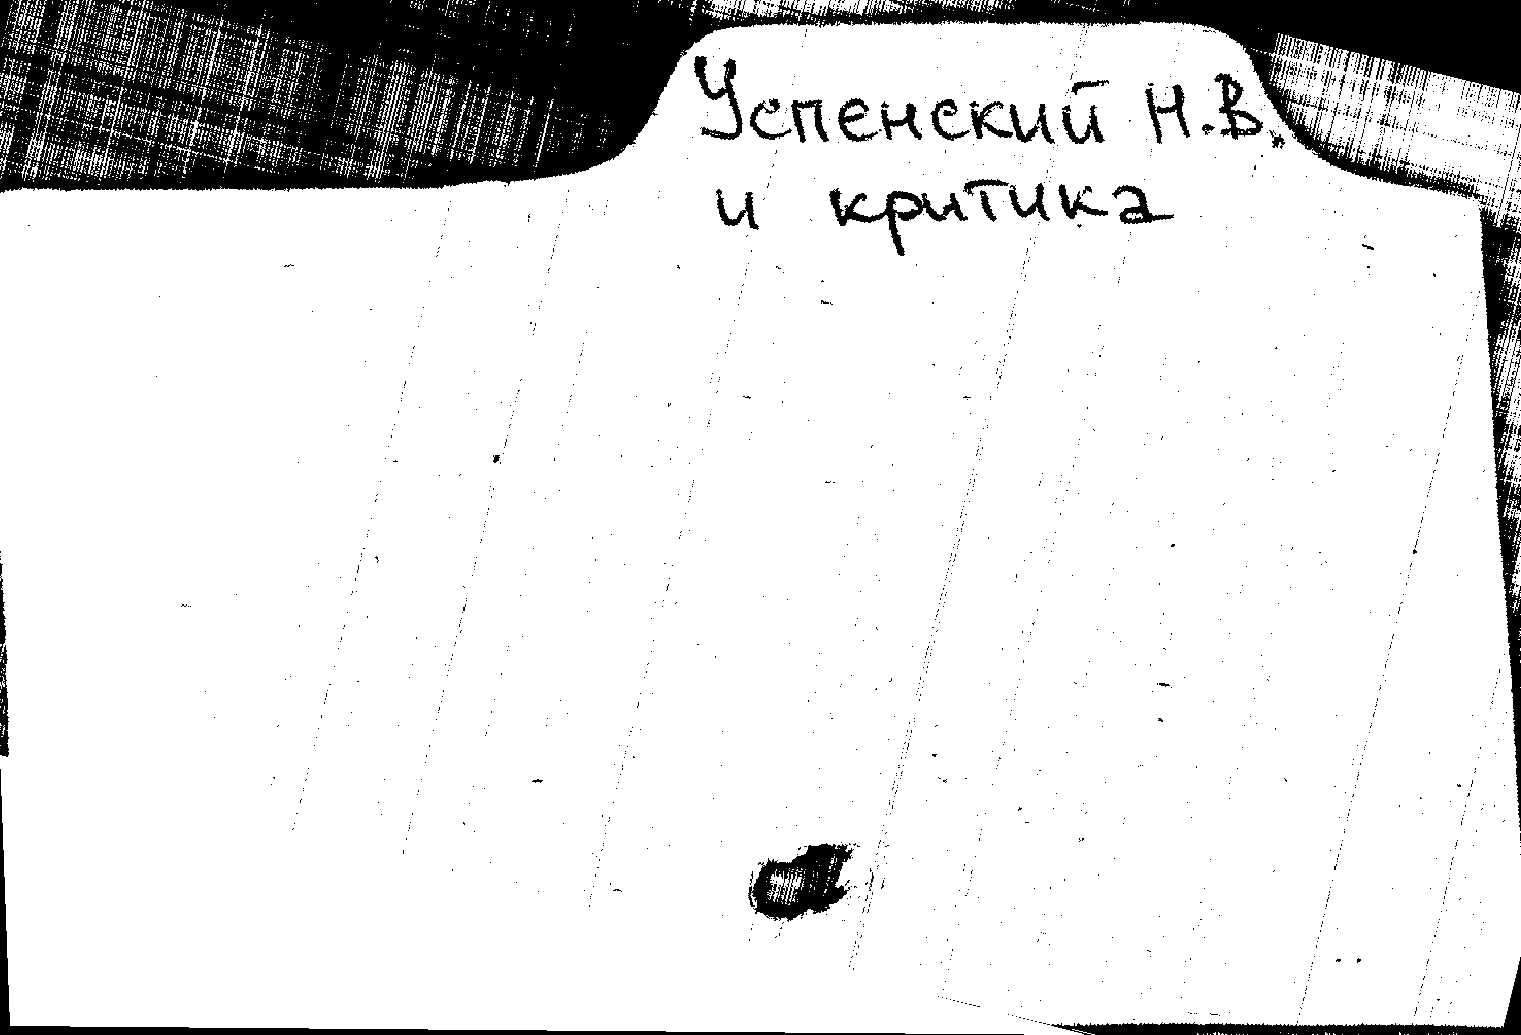 Успенский Н.В.
и критика